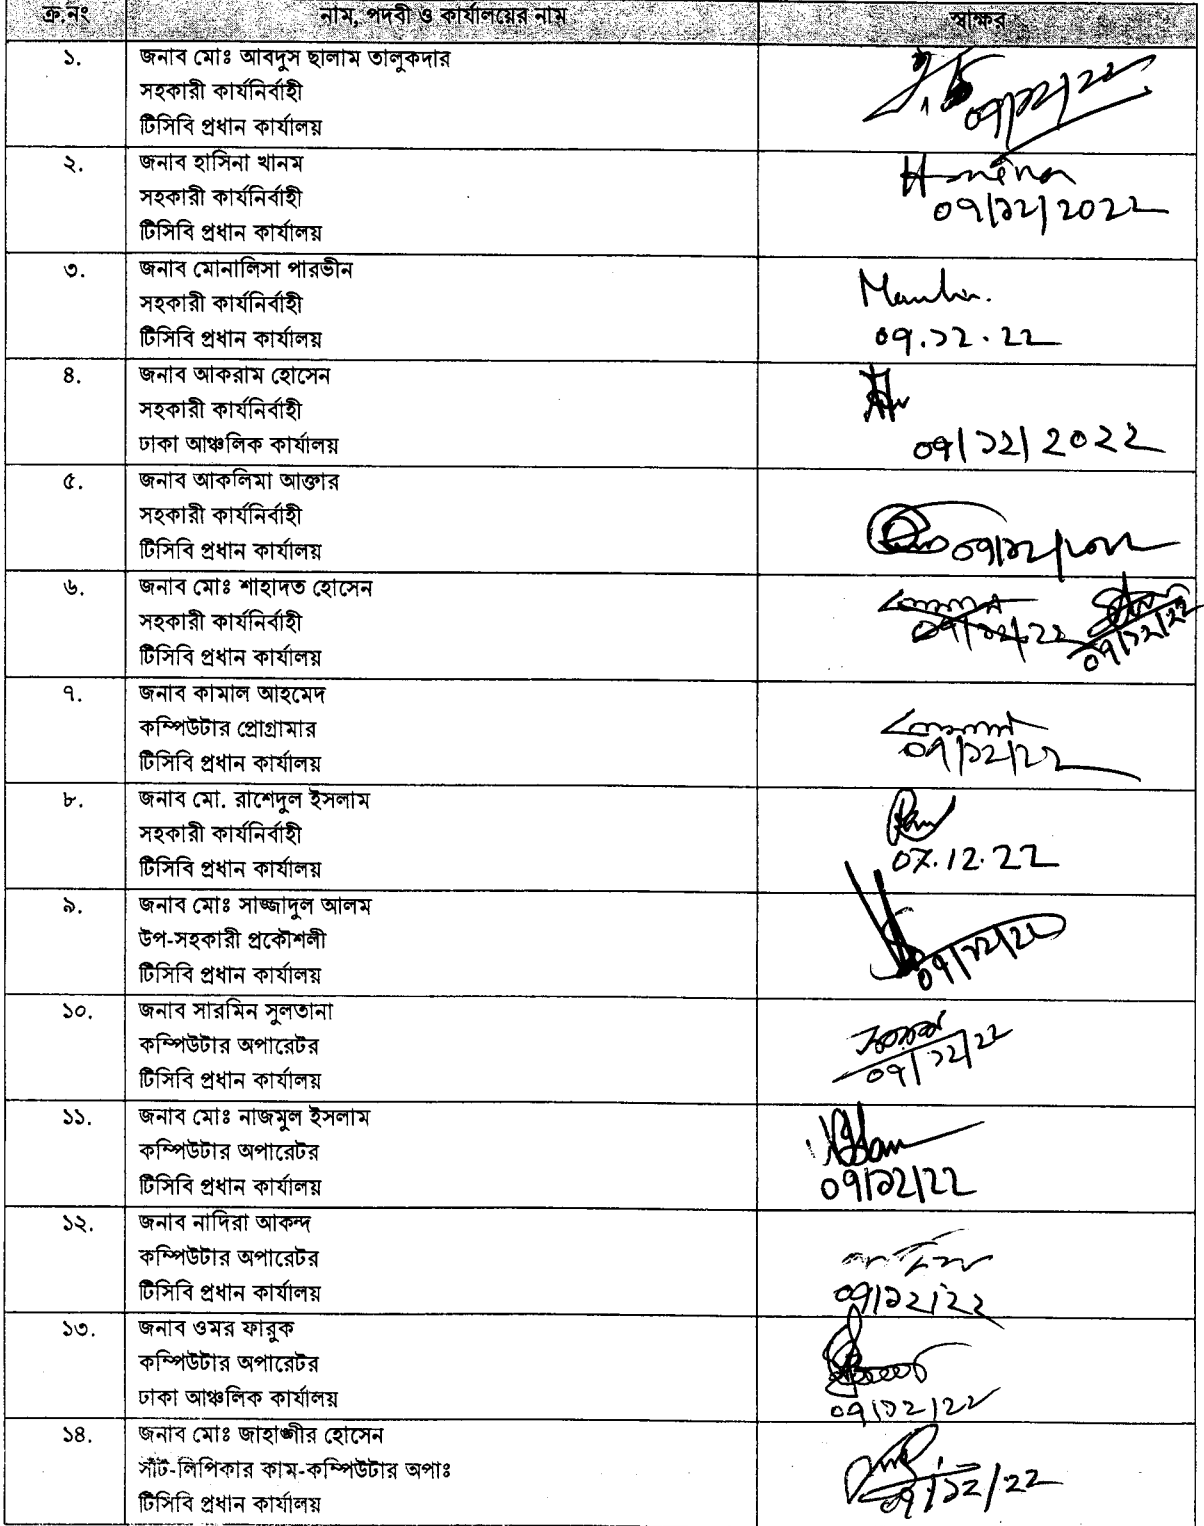 ক্র.নং নাম, পদবী ও কার্যালয়ের নাম স্বাক্ষর
১. জনাব মোঃ আবদুস ছালাম তালুকদার
সহকারী কার্যনির্বাহী
টিসিবি প্রধান কার্যালয় ০৭/১২/২২
২. জনাব হাসিনা খানম
সহকারী কার্যনির্বাহী
টিসিবি প্রধান কার্যালয় ০৭/১২/২০২২
৩. জনাব মোনালিসা পারভীন
সহকারী কার্যনির্বাহী
টিসিবি প্রধান কার্যালয় ০৭.১২.২২
৪. জনাব আকরাম হোসেন
সহকারী কার্যনির্বাহী
ঢাকা আঞ্চলিক কার্যালয় ০৭/১২/২০২২
৫. জনাব আকলিমা আক্তার
সহকারী কার্যনির্বাহী
টিসিবি প্রধান কার্যালয় ০৭/১২/২০২২
৬. জনাব মোঃ শাহাদত হোসেন
সহকারী কার্যনির্বাহী ০৭/১২/২২
টিসিবি প্রধান কার্যালয় ০৭/১২/২২
৭. জনাব কামাল আহমেদ
কম্পিউটার প্রোগ্রামার
টিসিবি প্রধান কার্যালয় ০৭/১২/২২
৮. জনাব মো. রাশেদুল ইসলাম
সহকারী কার্যনির্বাহী
টিসিবি প্রধান কার্যালয় 07.12.22
৯. জনাব মোঃ সাজ্জাদুল আলম
উপ-সহকারী প্রকৌশলী
টিসিবি প্রধান কার্যালয় ০৭/১২/২২
১০. জনাব সারমিন সুলতানা
কম্পিউটার অপারেটর
টিসিবি প্রধান কার্যালয় ০৭/১২/২২
১১. জনাব মোঃ নাজমুল ইসলাম
কম্পিউটার অপারেটর
টিসিবি প্রধান কার্যালয় ০৭/১২/২২
১২. জনাব নাদিরা আকন্দ
কম্পিউটার অপারেটর
টিসিবি প্রধান কার্যালয় ০৭/১২/২২
১৩. জনাব ওমর ফারুক
কম্পিউটার অপারেটর
ঢাকা আঞ্চলিক কার্যালয় ০৭/১২/২২
১৪. জনাব মোঃ জাহাঙ্গীর হোসেন
সাঁট-লিপিকার কাম-কম্পিউটার অপাঃ
টিসিবি প্রধান কার্যালয় ০৭/১২/২২